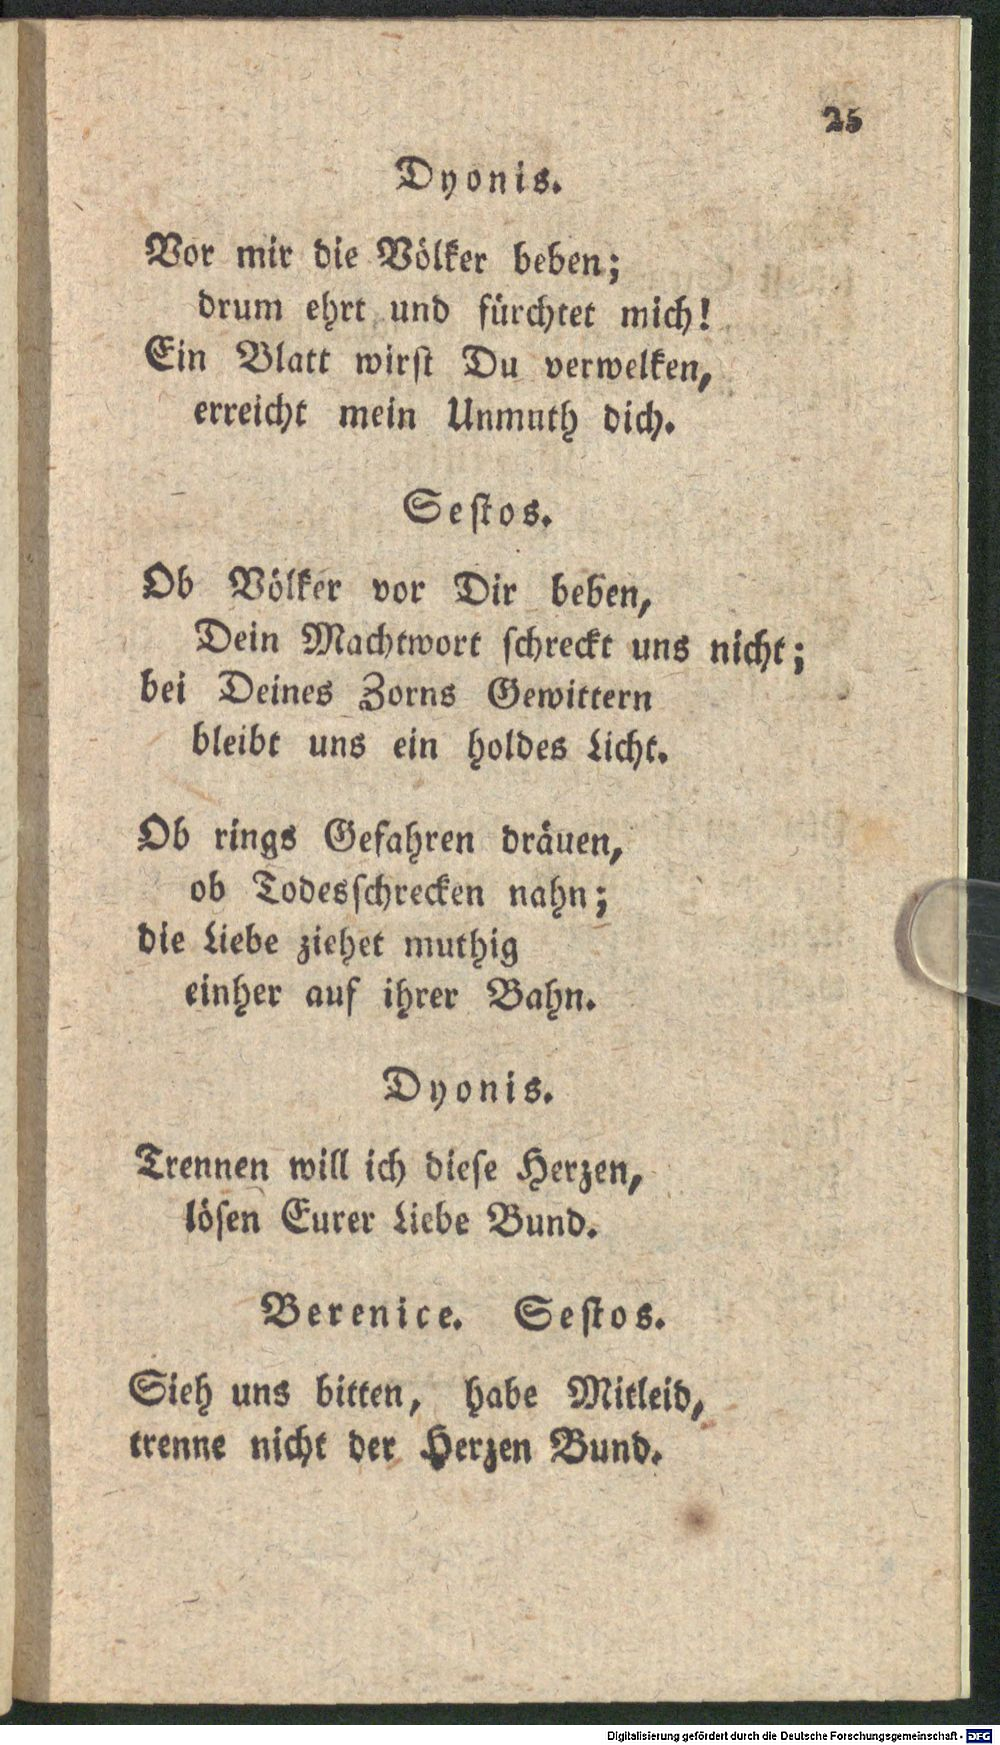 25
Dyonis.
Vor mir die Völker beben;
drum ehrt und fürchtet mich!
Ein Blatt wirst Du verwelken,
erreicht mein Unmuth dich.
Sestos.
Ob Völker vor Dir beben,
Dein Machtwort schreckt uns nicht;
bei Deines Zorns Gewittern
bleibt uns ein holdes Licht.
Ob rings Gefahren dräuen,
ob Todesschrecken nahn;
die Liebe ziehet muthig
einher auf ihrer Bahn.
Dyonis.
Trennen will ich diese Herzen,
lösen Eurer Liebe Bund.
Berenice. Sestos.
Sieh uns bitten, habe Mitleid,
trenne nicht der Herzen Bund.
Digitalisierung gefördert durch die Deutsche Forschungsgemeinschaft - DFG